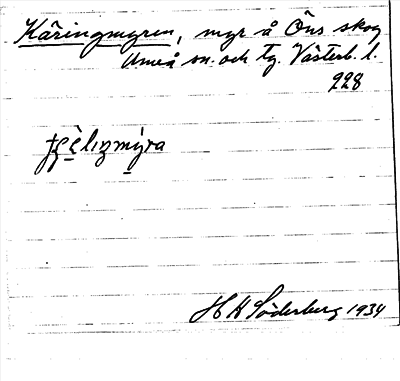 Käringmyren, myr å Öns skog
Umeå sn. och tg. Västerb. l.
228
H K Söderberg 1934